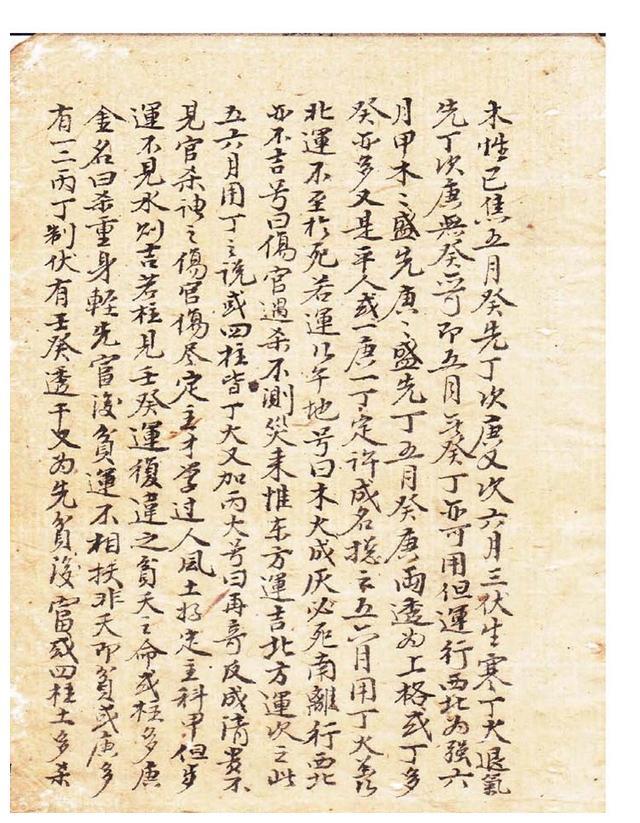 木性已焦五月癸先丁次庚又次六月三伏生寒丁火退氣
先丁次庚無癸可即五月乏癸丁亦可用但運行西北為強六
月甲木木盛先庚庚盛先丁五月癸庚兩透為上格或丁多
癸亦多又是平人或一庚一丁定許成名總云五六月用丁火者
北運不至於死若運行午地号曰木火成灰必死南離行西北
亦不吉号曰傷官遇杀不測災来惟东方運吉北方運次之此
五六月用丁之说或四柱皆丁火又加丙火号曰再奇反成清贵不
見官杀謂之傷官傷尽定主才学过人風土好定主科甲但歩
運不見水则吉若柱見壬癸運復違之貧夭之命或柱多庚
金名曰杀重身輕先富後貧運不相扶非夭即貧或庚多
有一二丙丁制伏有壬癸透干又为先貧後富或四柱土多杀